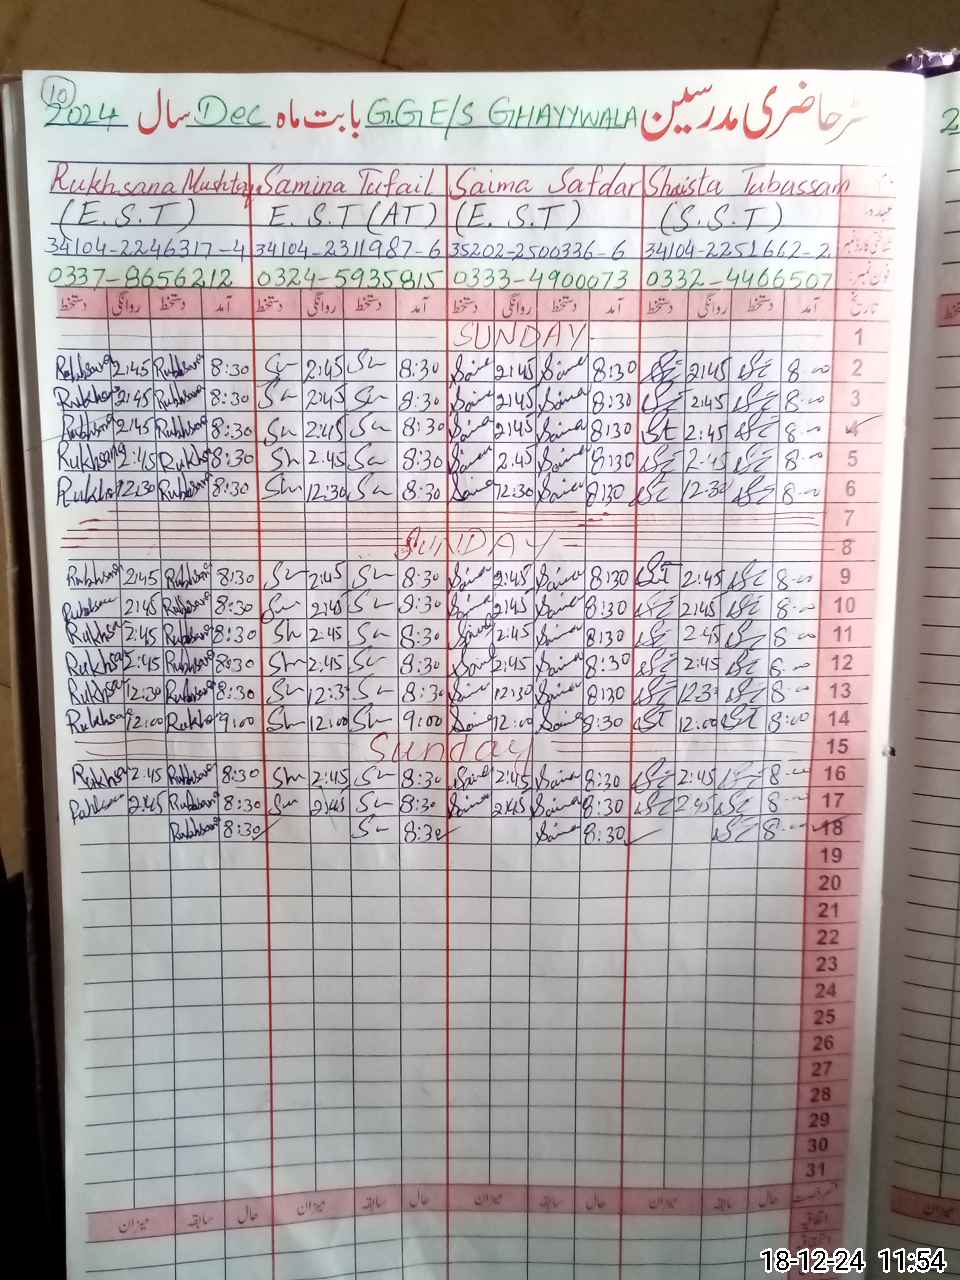 10
رجسٹر حاضری مدرسین G.G.E/S GHAYYWALA بابت ماہ Dec سال 2024
Rukhsana Mushtaq Samina Tufail Saima Safdar Shaista Tubassam
(E.S.T) E.S.T (AT) (E.S.T) (S.S.T) عہدہ
34104-2246317-4 34104-2311987-6 35202-2500336-6 34104-2251662-2
0337-8656212 0324-5935815 0333-4900073 0332-4466507 فون نمبر
دستخط روانگی دستخط آمد دستخط روانگی دستخط آمد دستخط روانگی دستخط آمد دستخط روانگی دستخط آمد تاریخ
SUNDAY 1
Rukhsana 2:45 Rukhsana 8:30 Sa 2:45 Sa 8:30 Saima 2:45 Saima 8:30 St 2:45 St 8:00 2
Rukhs 2:45 Rukhsana 8:30 Sa 2:45 Sa 8:30 Saima 2:45 Saima 8:30 St 2:45 St 8:00 3
Rukhsana 2:45 Rukhsana 8:30 Sa 2:45 Sa 8:30 Saima 2:45 Saima 8:30 St 2:45 St 8:00 4
Rukhsana 2:45 Rukhs 8:30 Sh 2:45 Sa 8:30 Saima 2:45 Saima 8:30 St 2:45 St 8:00 5
Rukhs 12:30 Rukhsana 8:30 Sh 12:30 Sa 8:30 Saima 12:30 Saima 8:30 St 12:30 St 8:00 6
7
SUNDAY 8
Rukhsana 2:45 Rukhsana 8:30 Sa 2:45 Sa 8:30 Saima 2:45 Saima 8:30 St 2:45 St 8:00 9
Rukhsana 2:45 Rukhsana 8:30 Sa 2:45 Sa 8:30 Saima 2:45 Saima 8:30 St 2:45 St 8:00 10
Rukhsa 2:45 Rukhsana 8:30 Sh 2:45 Sa 8:30 Saima 2:45 Saima 8:30 St 2:45 St 8:00 11
Rukhsa 2:45 Rukhsana 8:30 Sh 2:45 Sa 8:30 Saima 2:45 Saima 8:30 St 2:45 St 8:00 12
Rukhsa 12:30 Rukhsana 8:30 Sa 12:3 Sa 8:30 Saima 12:30 Saima 8:30 St 12:3 St 8:00 13
Rukhsa 12:00 Rukhs 9:00 Sh 12:00 Sh 9:00 Saima 12:00 Saima 8:30 St 12:00 St 8:00 14
Sunday 15
Rukhsa 2:45 Rukhsana 8:30 Sh 2:45 Sa 8:30 Saima 2:45 Saima 8:30 St 2:45 St 8:00 16
Rukhsana 2:45 Rukhsana 8:30 Sa 2:45 Sa 8:30 Saima 2:45 Saima 8:30 St 2:45 St 8:00 17
Rukhsana 8:30 Sa 8:30 Saima 8:30 St 8:00 18
19
20
21
22
23
24
25
26
27
28
29
30
31
میزان سابقہ حال میزان سابقہ حال میزان سابقہ حال میزان سابقہ حال
اتفاقیہ
18-12-24 11:54